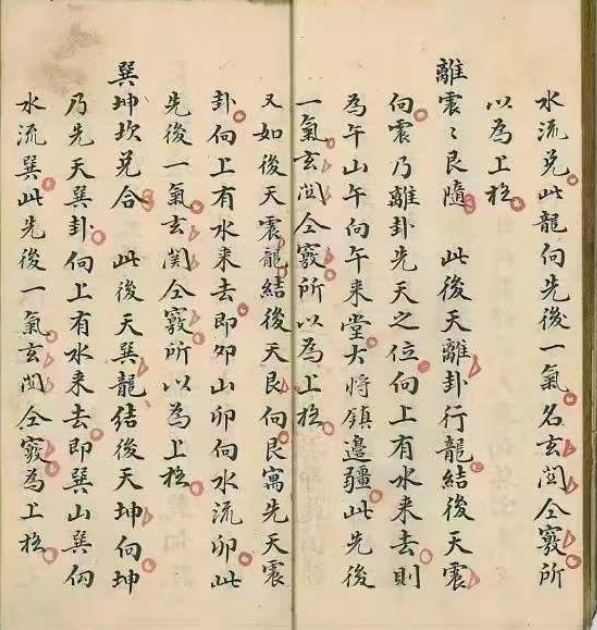 水流兌此龍向先後一氣名玄関仝竅所
以為上格
離震〻艮隨 此後天離卦行龍結後天震
向震乃離卦先天之位向上有水来去則
為午山午向午来堂大將鎮邊疆此先後
一氣玄関仝竅所以為上格
又如後天震龍結後天艮向艮寓先天震
卦向上有水来去即卯山卯向水流卯此
先後一氣玄関仝竅所以為上格
巽坤坎兌合 此後天巽龍結後天坤向坤
乃先天巽卦向上有水来去即巽山巽向
水流巽此先後一氣玄関仝竅為上格